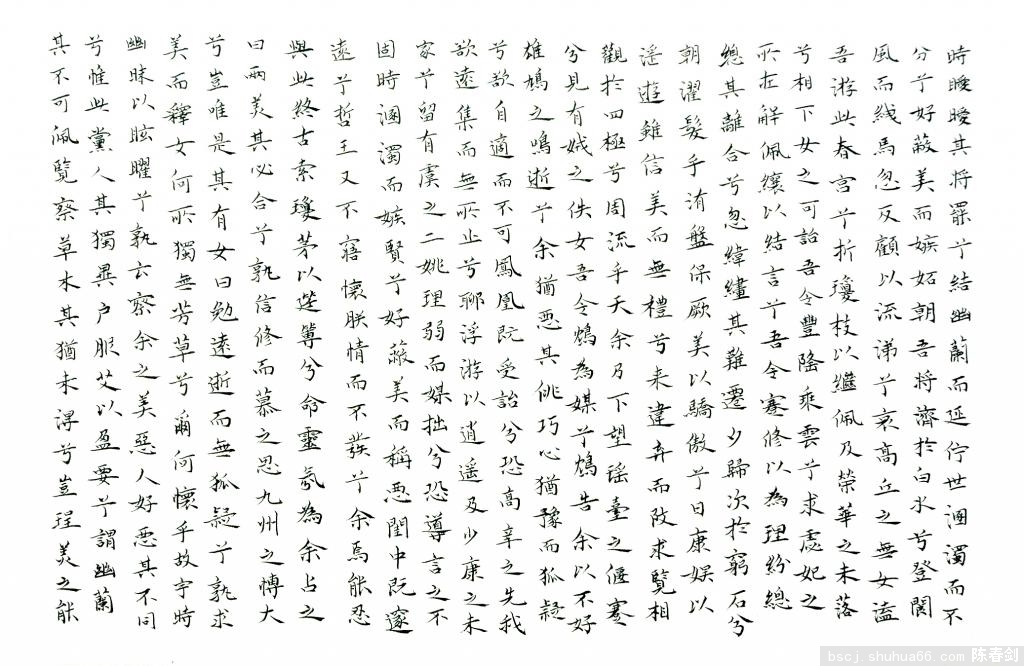 時曖曖其將罷兮結幽蘭而延佇世溷濁而不
分兮好蔽美而嫉妬朝吾將濟於白水兮登閬
風而緤馬忽反顧以流涕兮哀高丘之無女溘
吾游此春宮兮折瓊枝以繼佩及榮華之未落
兮相下女之可詒吾令豐隆乘雲兮求虙妃之
所在解佩纕以結言兮吾令蹇修以為理紛總
總其離合兮忽緯繣其難遷夕歸次於窮石兮
朝濯髮乎洧盤保厥美以驕傲兮日康娛以
淫遊雖信美而無禮兮来違弃而改求覽相
觀於四極兮周流乎天余乃下望瑤臺之偃蹇
兮見有娀之佚女吾令鴆為媒兮鴆告余以不好
雄鳩之鳴逝兮余猶惡其佻巧心猶豫而狐疑
兮欲自適而不可鳳凰既受詒兮恐高辛之先我
欲遠集而無所止兮聊浮游以逍遙及少康之未
家兮留有虞之二姚理弱而媒拙兮恐導言之不
固時溷濁而嫉賢兮好蔽美而稱惡閨中既邃
遠兮哲王又不寤懷朕情而不發兮余焉能忍
與此終古索瓊茅以筳篿兮命靈氛為余占之
曰兩美其必合兮孰信修而慕之思九州之博大
兮豈唯是其有女曰勉遠逝而無狐疑兮孰求
美而釋女何所獨無芳草兮爾何懷乎故宇時
幽昧以眩曜兮孰云察余之美惡人好惡其不同
兮惟此黨人其獨異户服艾以盈要兮謂幽蘭
其不可佩覽察草木其猶未得兮豈珵美之能
bscj.shuhua66.com 陈春剑